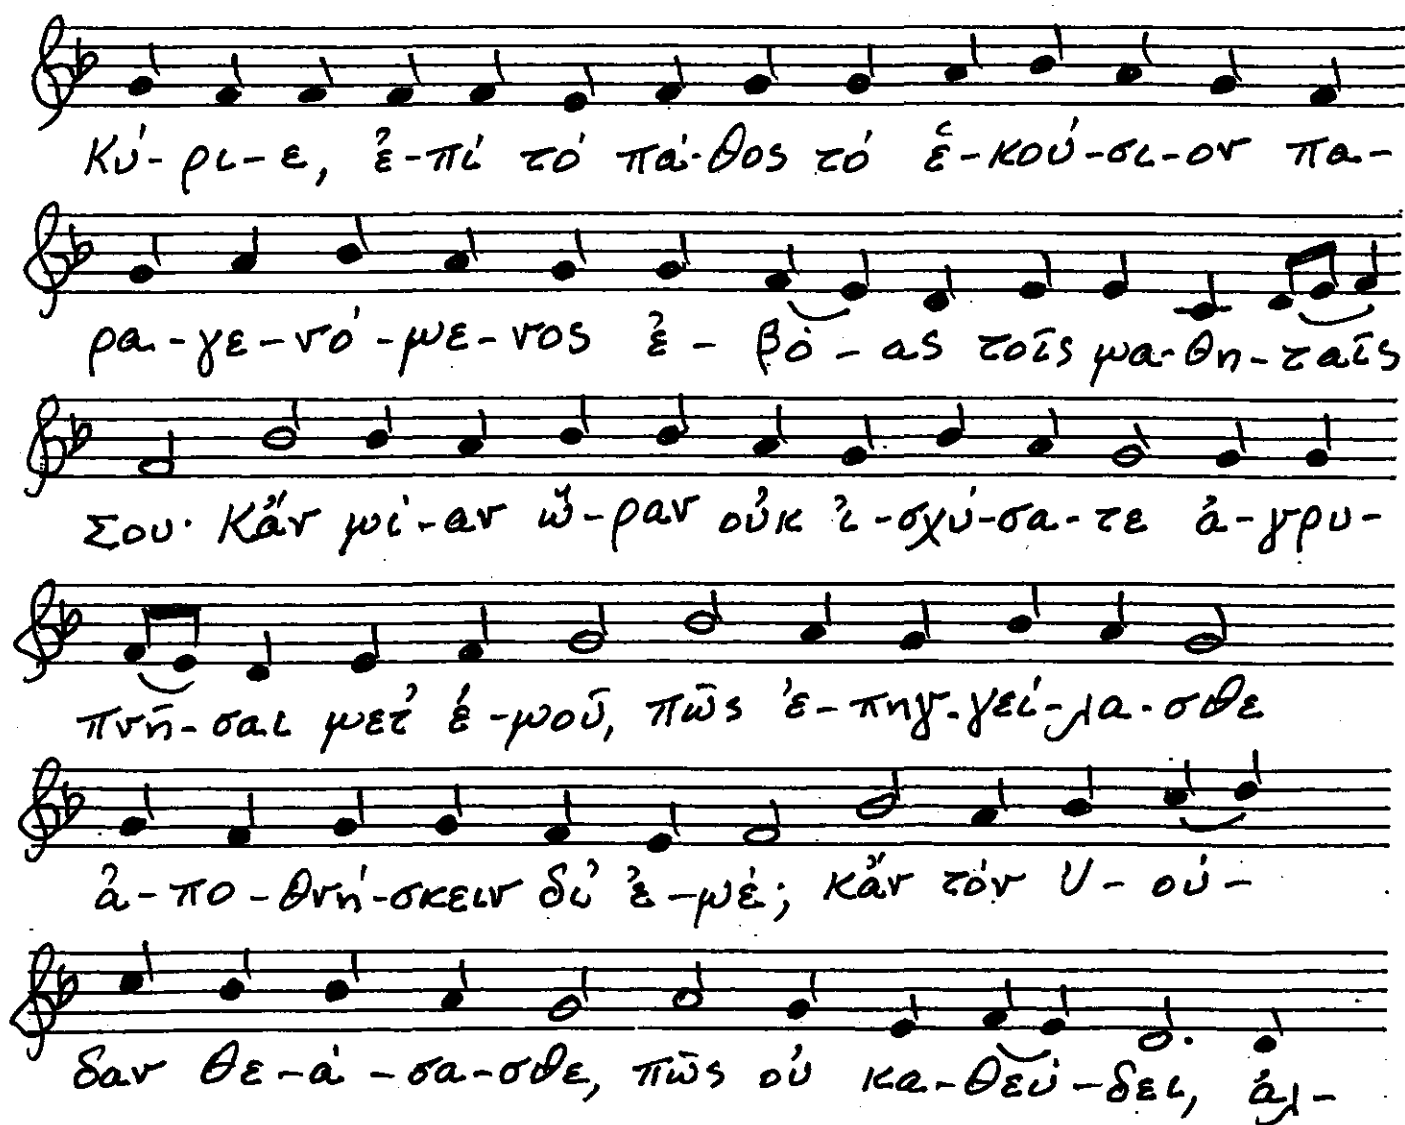 Κύ-ρι-ε, ἐ-πί τό πά-θος τό ἑ-κού-σι-ον πα-
ρα-γε-νό-με-νος ἐ-βό-ας τοῖς μα-θη-ταῖς
Σου· Κἄν μί-αν ὥ-ραν οὐκ ἰ-σχύ-σα-τε ἀ-γρυ-
πνῆ-σαι μετ' ἐ-μοῦ, πῶς ἐ-πηγ-γεί-λα-σθε
ἀ-πο-θνή-σκειν δι' ἐ-μέ; κἄν τόν Ι-ού-
δαν θε-ά-σα-σθε, πῶς οὐ κα-θεύ-δει, ἀλ-